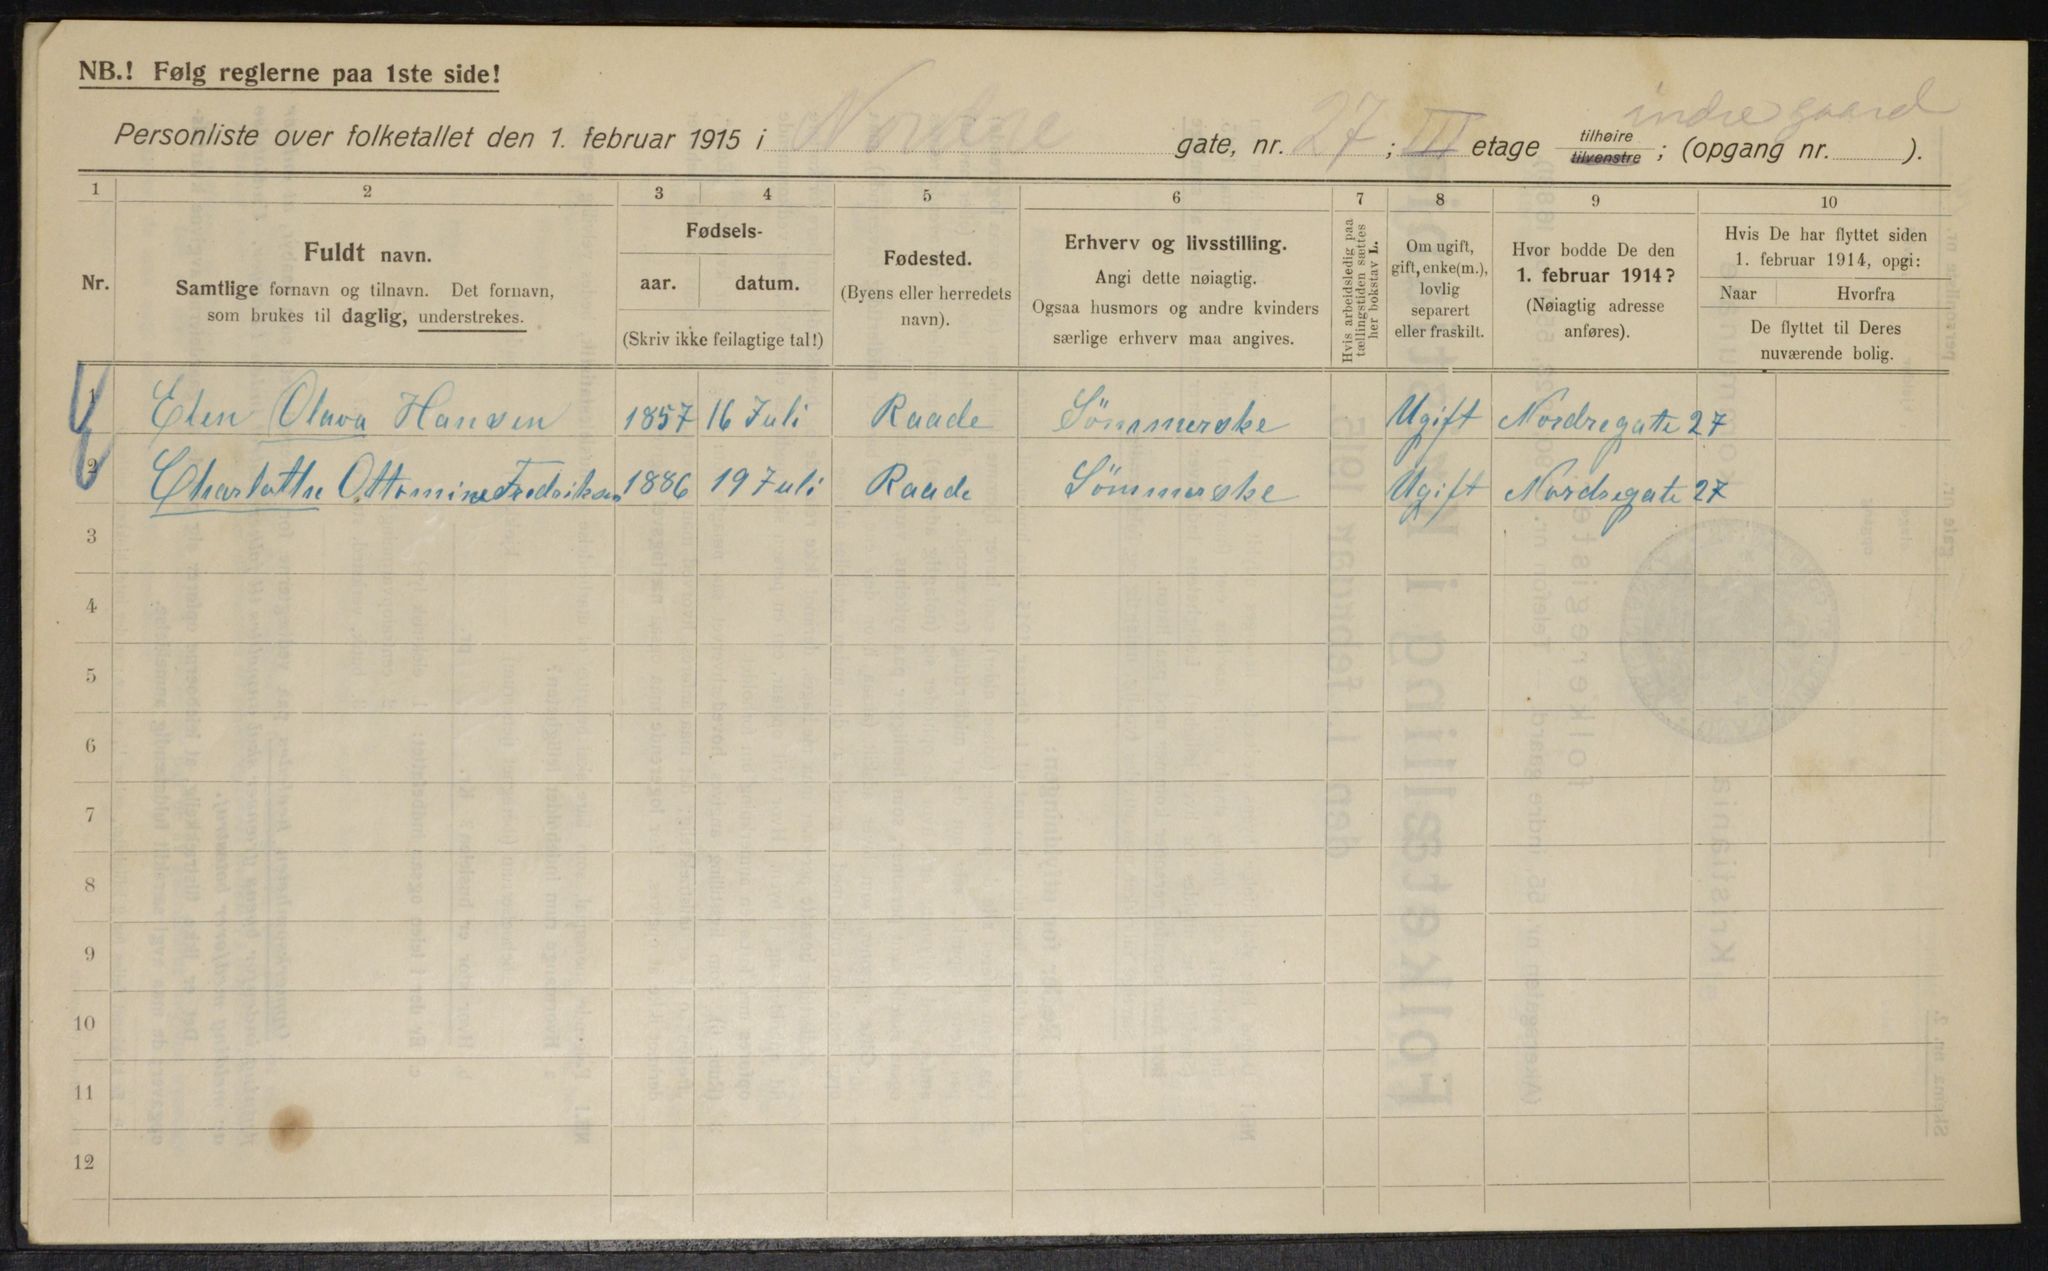 NB.! Følg reglerne paa 1ste side!
indre gaard
Personliste over folketallet den 1. februar 1915 i Nordre gate, nr. 27; III etage tilhøire tilvenstre; (opgang nr. ).
1 2 3 4 5 6 7 8 9 10
Nr.
Fuldt navn.
Samtlige fornavn og tilnavn. Det fornavn,
som brukes til daglig, understrekes.
Fødsels-
aar. datum.
(Skriv ikke feilagtige tal!)
Fødested.
(Byens eller herredets
navn).
Erhverv og livsstilling.
Angi dette nøiagtig.
Ogsaa husmors og andre kvinders
særlige erhverv maa angives.
Hvis arbeidsledig paa
tællingstiden sættes
her bokstav L.
Om ugift,
gift, enke(m.),
lovlig
separert
eller fraskilt.
Hvor bodde De den
1. februar 1914?
(Nøiagtig adresse
anføres).
Hvis De har flyttet siden
1. februar 1914, opgi:
Naar Hvorfra
De flyttet til Deres
nuværende bolig.
1 Elen Olava Hansen 1857 16 Juli Raade Sömmerske Ugift Nordregate 27
2 Charlotthe Ottomine Fredriksen 1886 19 Juli Raade Sömmerske Ugift Nordregate 27
3
4
5
6
7
8
9
10
11
12